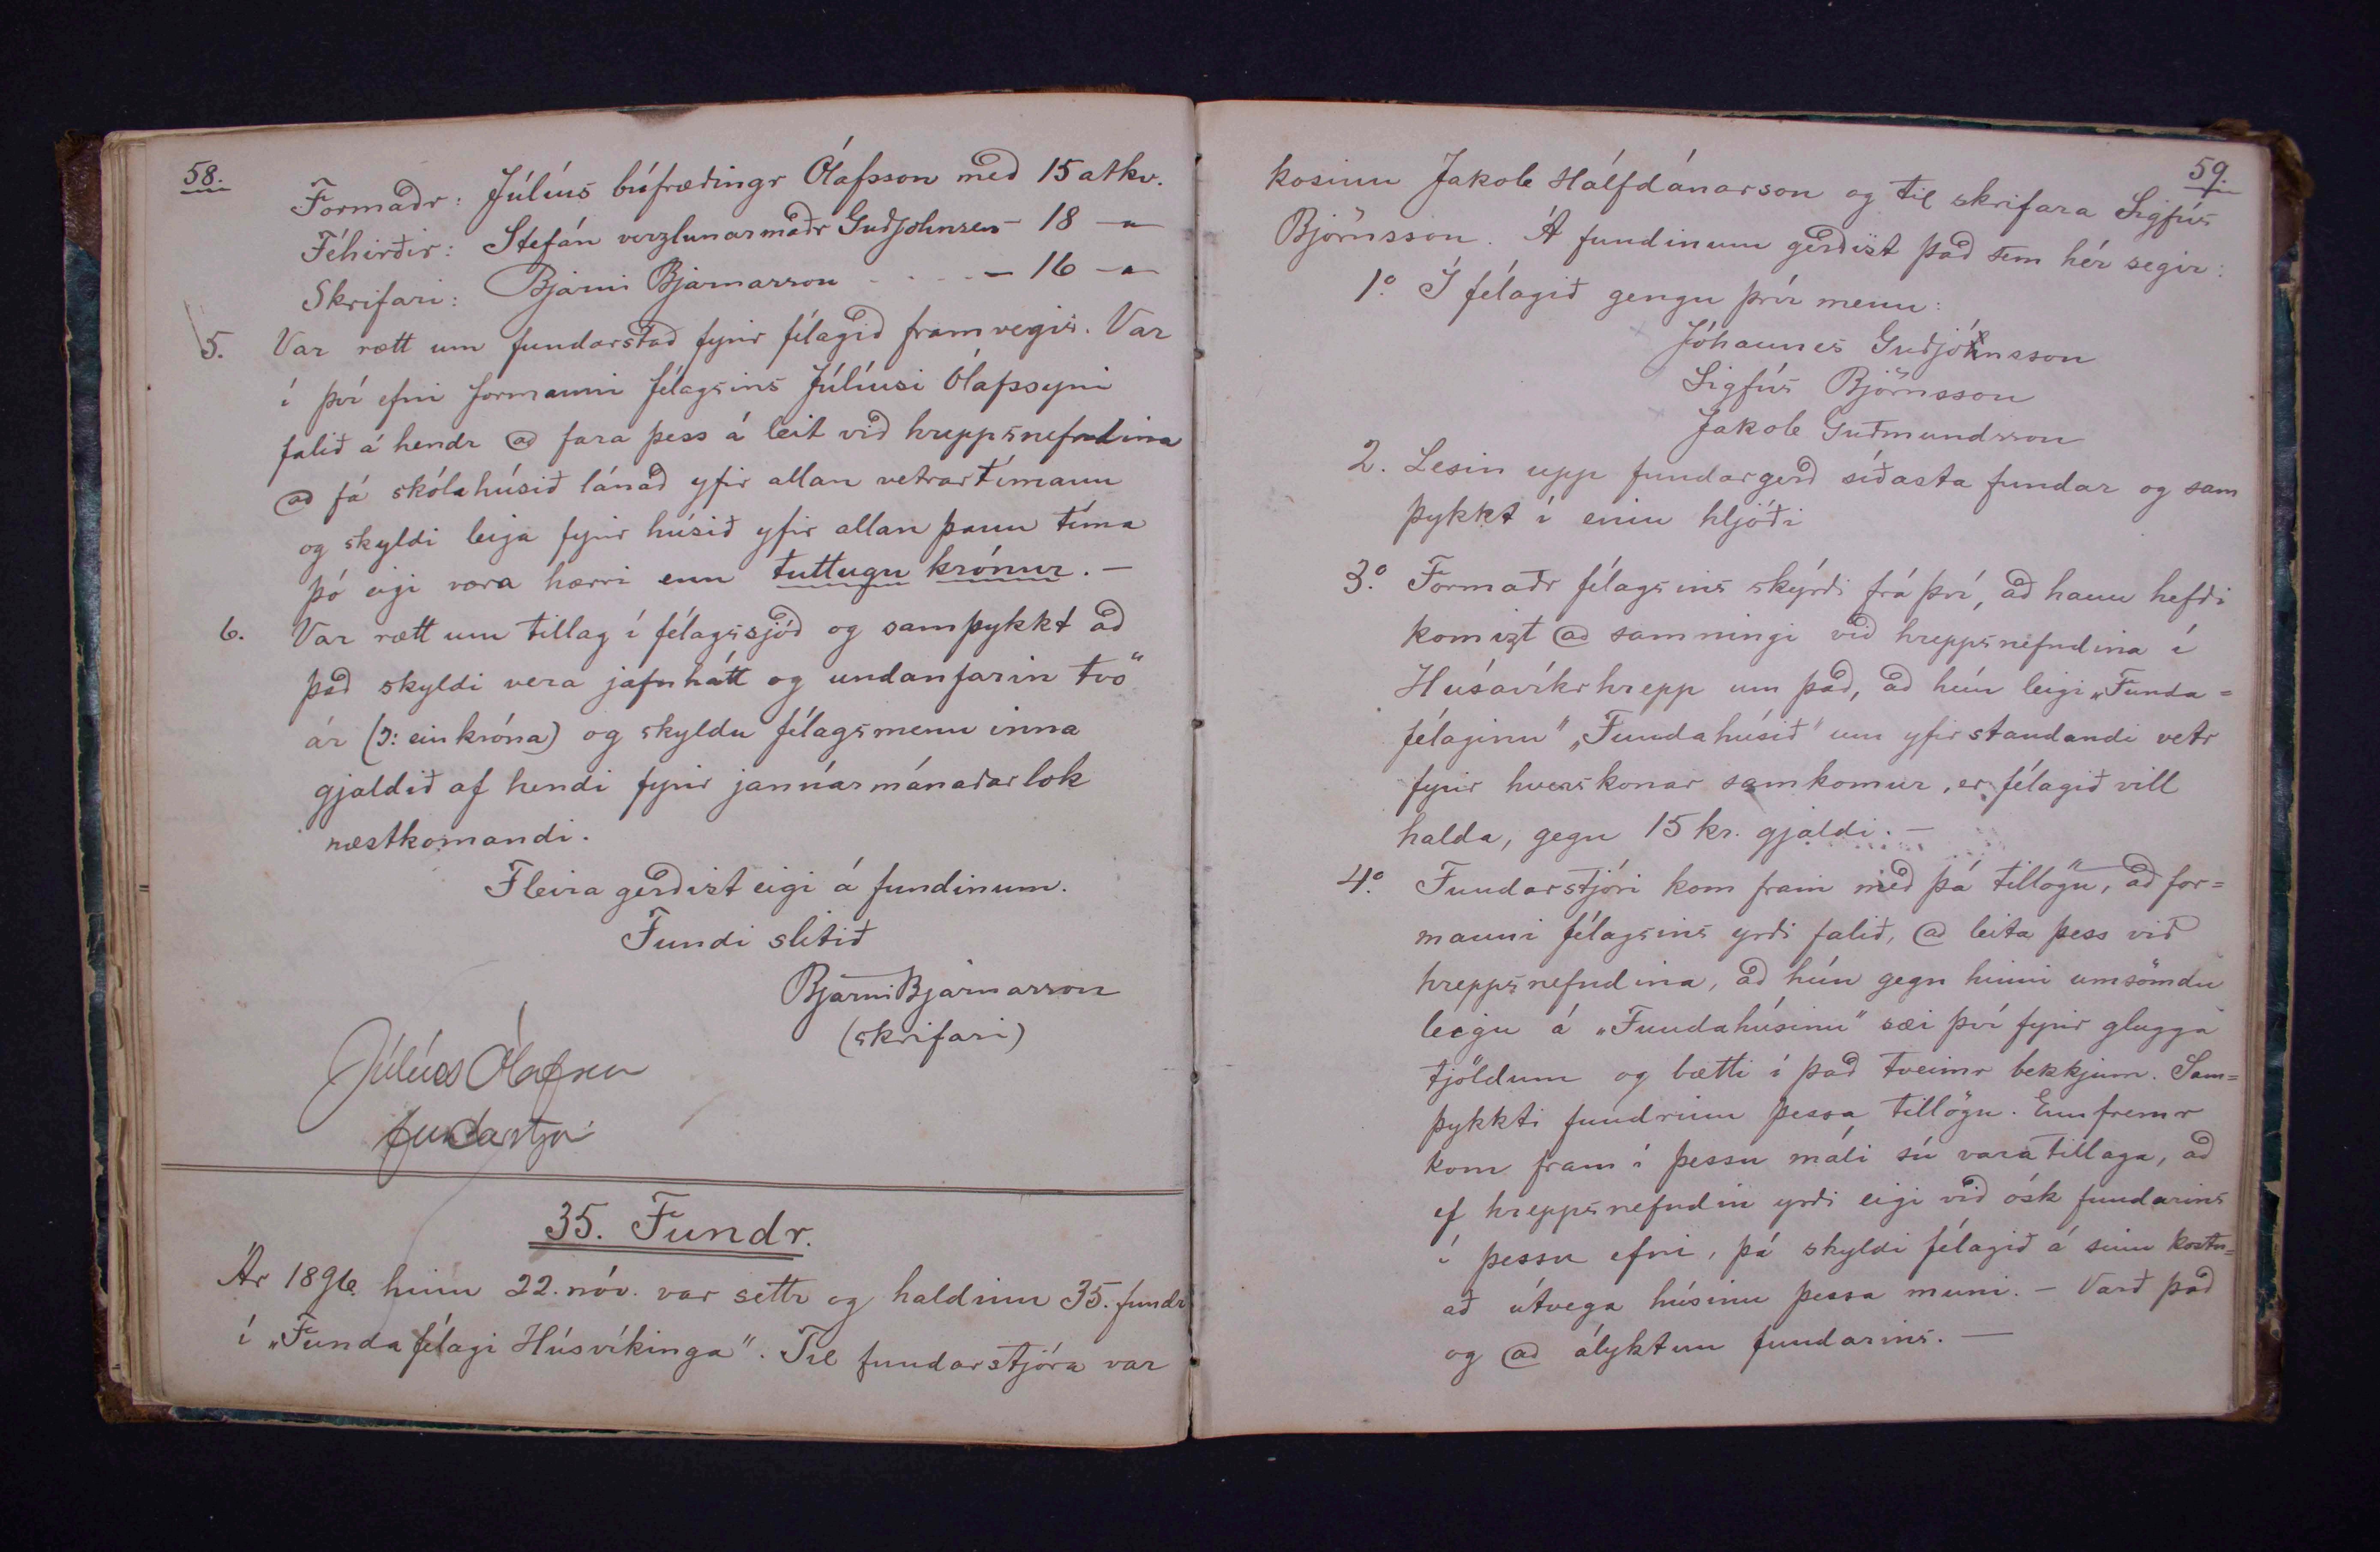 58.
Formaðr: Júlíus búfræðingr Ólafsson með 15 atkv.
Féhirðir: Stefán verzlunarmaðr Guðjohnsen – 18 –"–
Skrifari: Bjarni Bjarnarson . . . – 16 –"–
5. Var rætt um fundarstað fyrir félagið framvegis. Var
í því efni formanni félagsins Júlíusi Ólafssyni
falið á hendr að fara þess á leit við hreppsnefndina
að fá skólahúsið lánað yfir allan vetrartímann
og skyldi leiga fyrir húsið yfir allan þann tíma
þó eigi vera hærri enn tuttugu krónur. –
6. Var rætt um tillag í félagssjóð og samþykkt að
það skyldi vera jafnhátt og undanfarin tvö
ár (ɔ: ein króna) og skyldu félagsmenn inna
gjaldið af hendi fyrir janúarmánaðarlok
næstkomandi.
Fleira gerðist eigi á fundinum.
Fundi slitið
Bjarni Bjarnarson
(skrifari)
Júlíus Ólafsson
fundarstjóri
35. Fundr.
Ár 1896 hinn 22. nóv. var settr og haldinn 35. fundr
í „Fundafélagi Húsvíkinga". Til fundarstjóra var
59.
kosinn Jakob Hálfdánarson og til skrifara Sigfús
Björnsson. Á fundinum gerðist það sem hér segir:
1.º Í félagið gengu þrír menn:
Jóhannes Guðjónsson
Sigfús Björnsson
Jakob Guðmundsson
2. Lesin upp fundargerð síðasta fundar og sam
þykkt í einu hljóði
3.º Formaðr félagsins skýrði frá því, að hann hefði
komizt að samningi við hreppsnefndina í
Húsavíkrhrepp um það, að hún leigi „Funda=
félaginu" „Fundahúsið" um yfirstandandi vetr
fyrir hverskonar samkomur, er félagið vill
halda, gegn 15 kr. gjaldi. –
4.º Fundarstjóri kom fram með þá tillögu, að for=
manni félagsins yrði falið, að leita þess við
hreppsnefndina, að hún gegn hinni umsömdu
leigu á „Fundahúsinu" sæi því fyrir glugga
tjöldum og bætti í það tveimr bekkjum. Sam=
þykkti fundrinn þessa tillögu. Ennfremr
kom fram í þessu máli sú varatillaga, að
ef hreppsnefndin yrði eigi við ósk fundarins
í þessu efni, þá skyldi félagið á sinn kostn=
að útvega húsinu þessa muni. – Varð það
og að ályktun fundarins. –